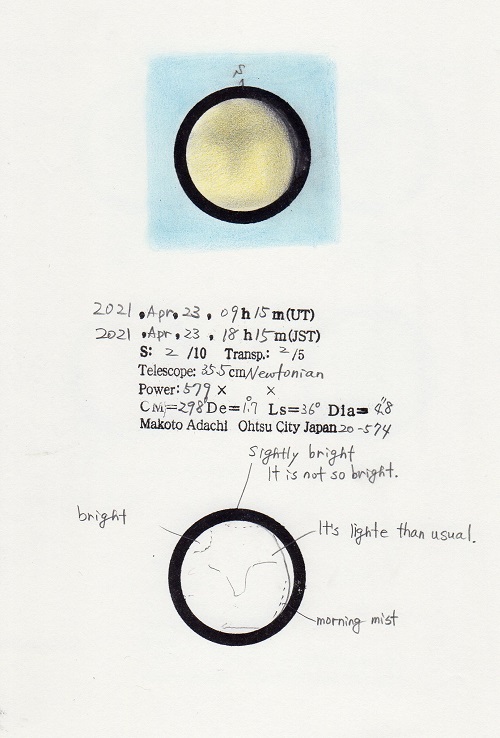 S
2021, Apr. 23, 09h15m(UT)
2021, Apr. 23, 18h15m(JST)
S: 2 /10 Transp.: 2/5
Telescope: 35.5cm Newtonian
Power: 579× ×
CM=298° De=1.7° Ls=36° Dia=4.8"
Makoto Adachi Ohtsu City Japan 20-574
Sightly bright
It is not so bright.
bright
It's lighte than usual.
morning mist